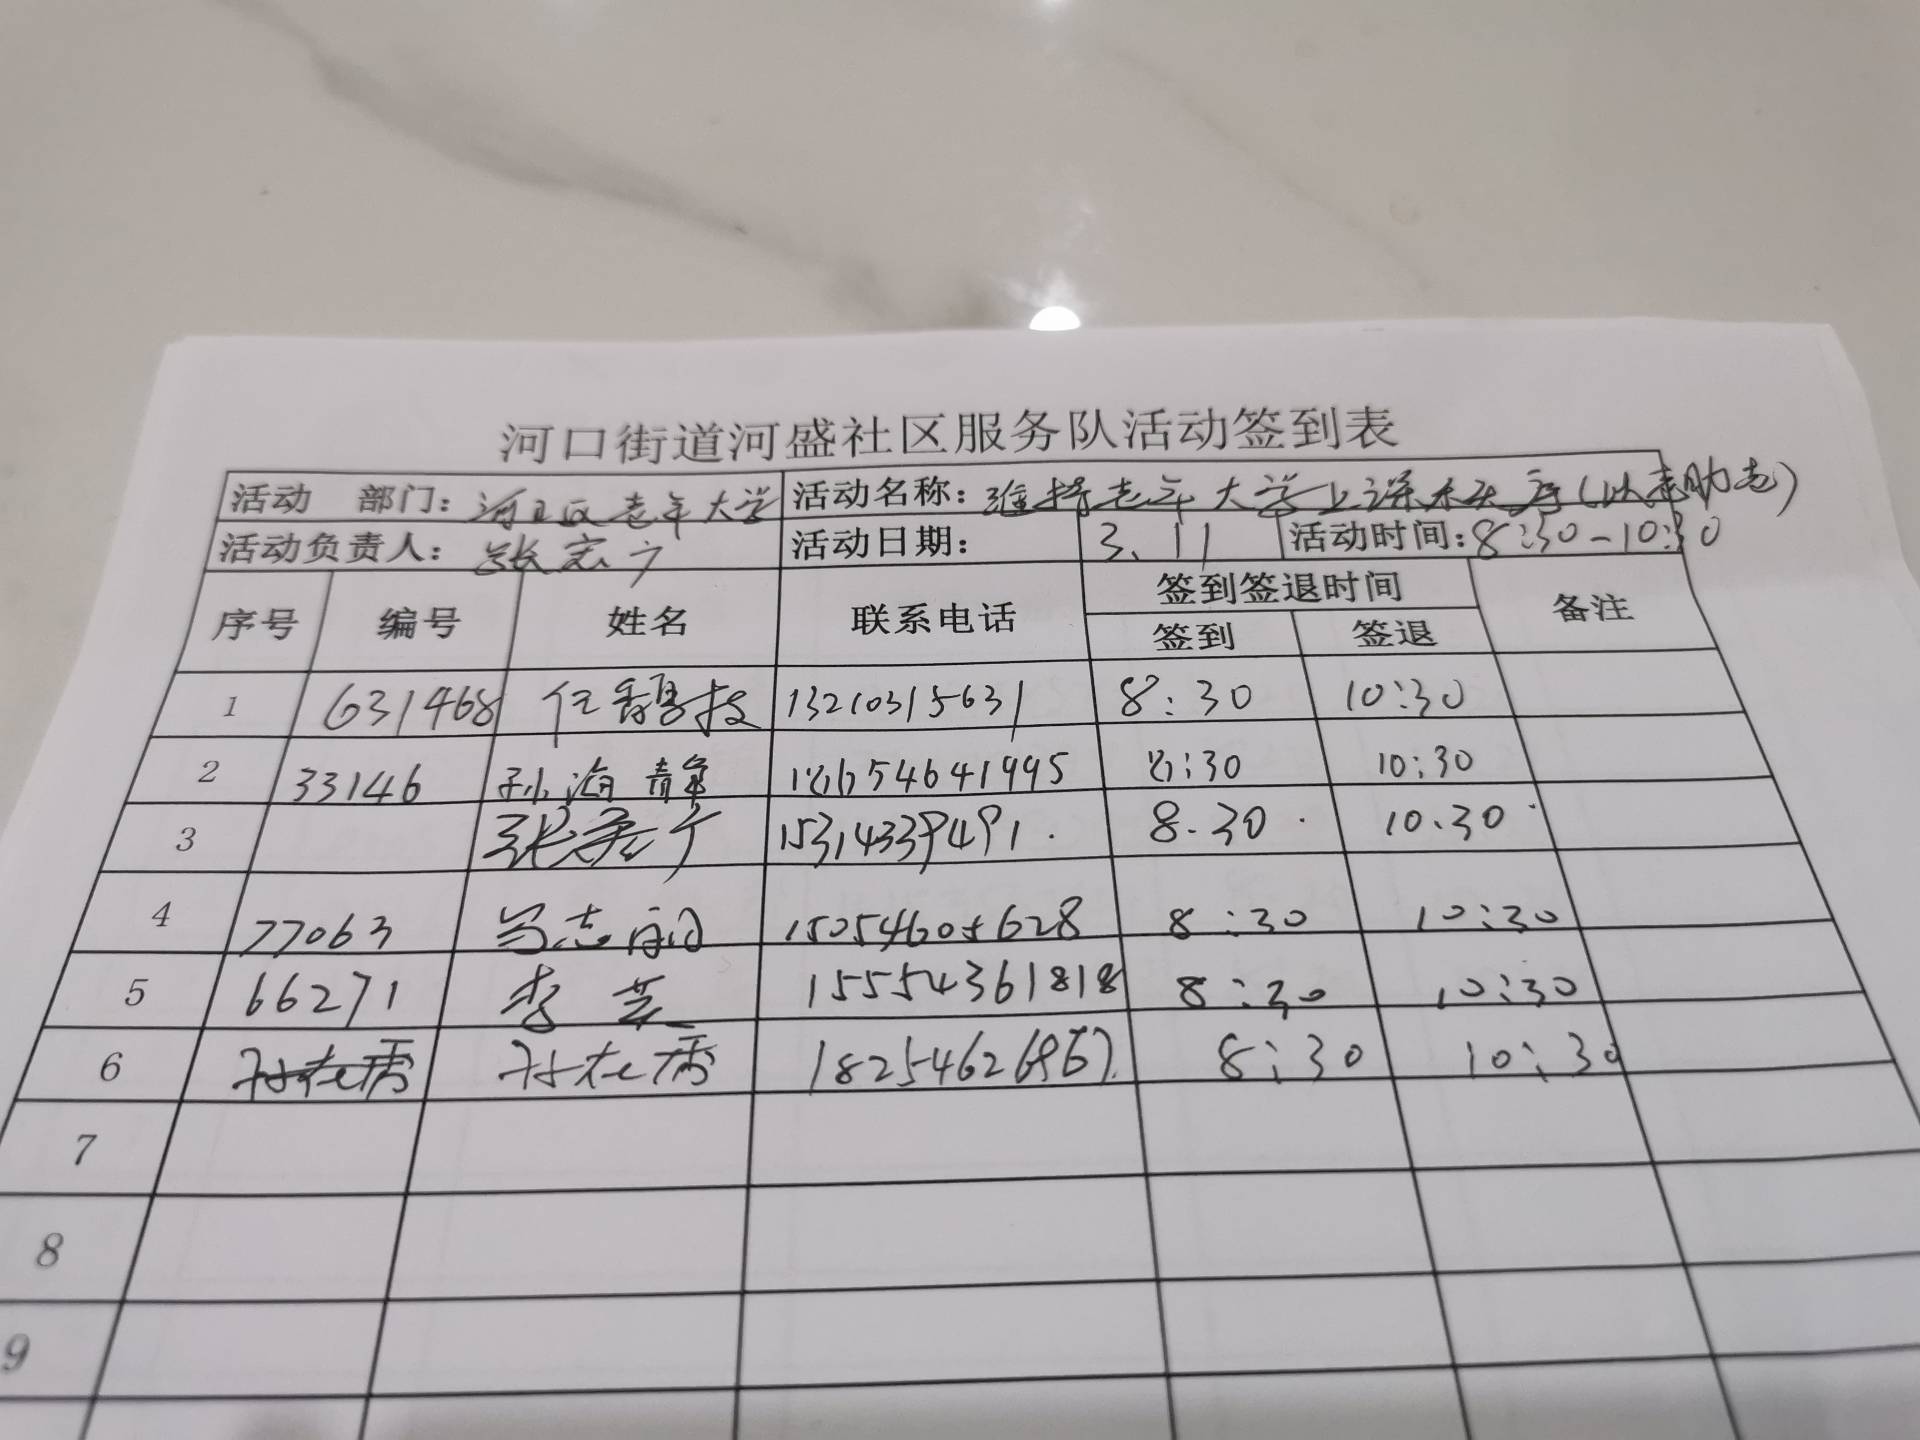 河口街道河盛社区服务队活动签到表
活动 部门：河口区老年大学 活动名称：维持老年大学上课秩序（以老助老）
活动负责人：张 活动日期： 3.11 活动时间：8:30-10:30
序号 编号 姓名 联系电话 签到签退时间 备注
签到 签退
1 631468 任 13210315631 8:30 10:30
2 33146 孙海静 18654641995 8:30 10:30
3 张 15314339491. 8.30 10.30
4 77063 志 15054605628 8:30 10:30
5 66271 李芝 15554361818 8:30 10:30
6 孙在秀 孙在秀 8:30 10:30
7
8
9